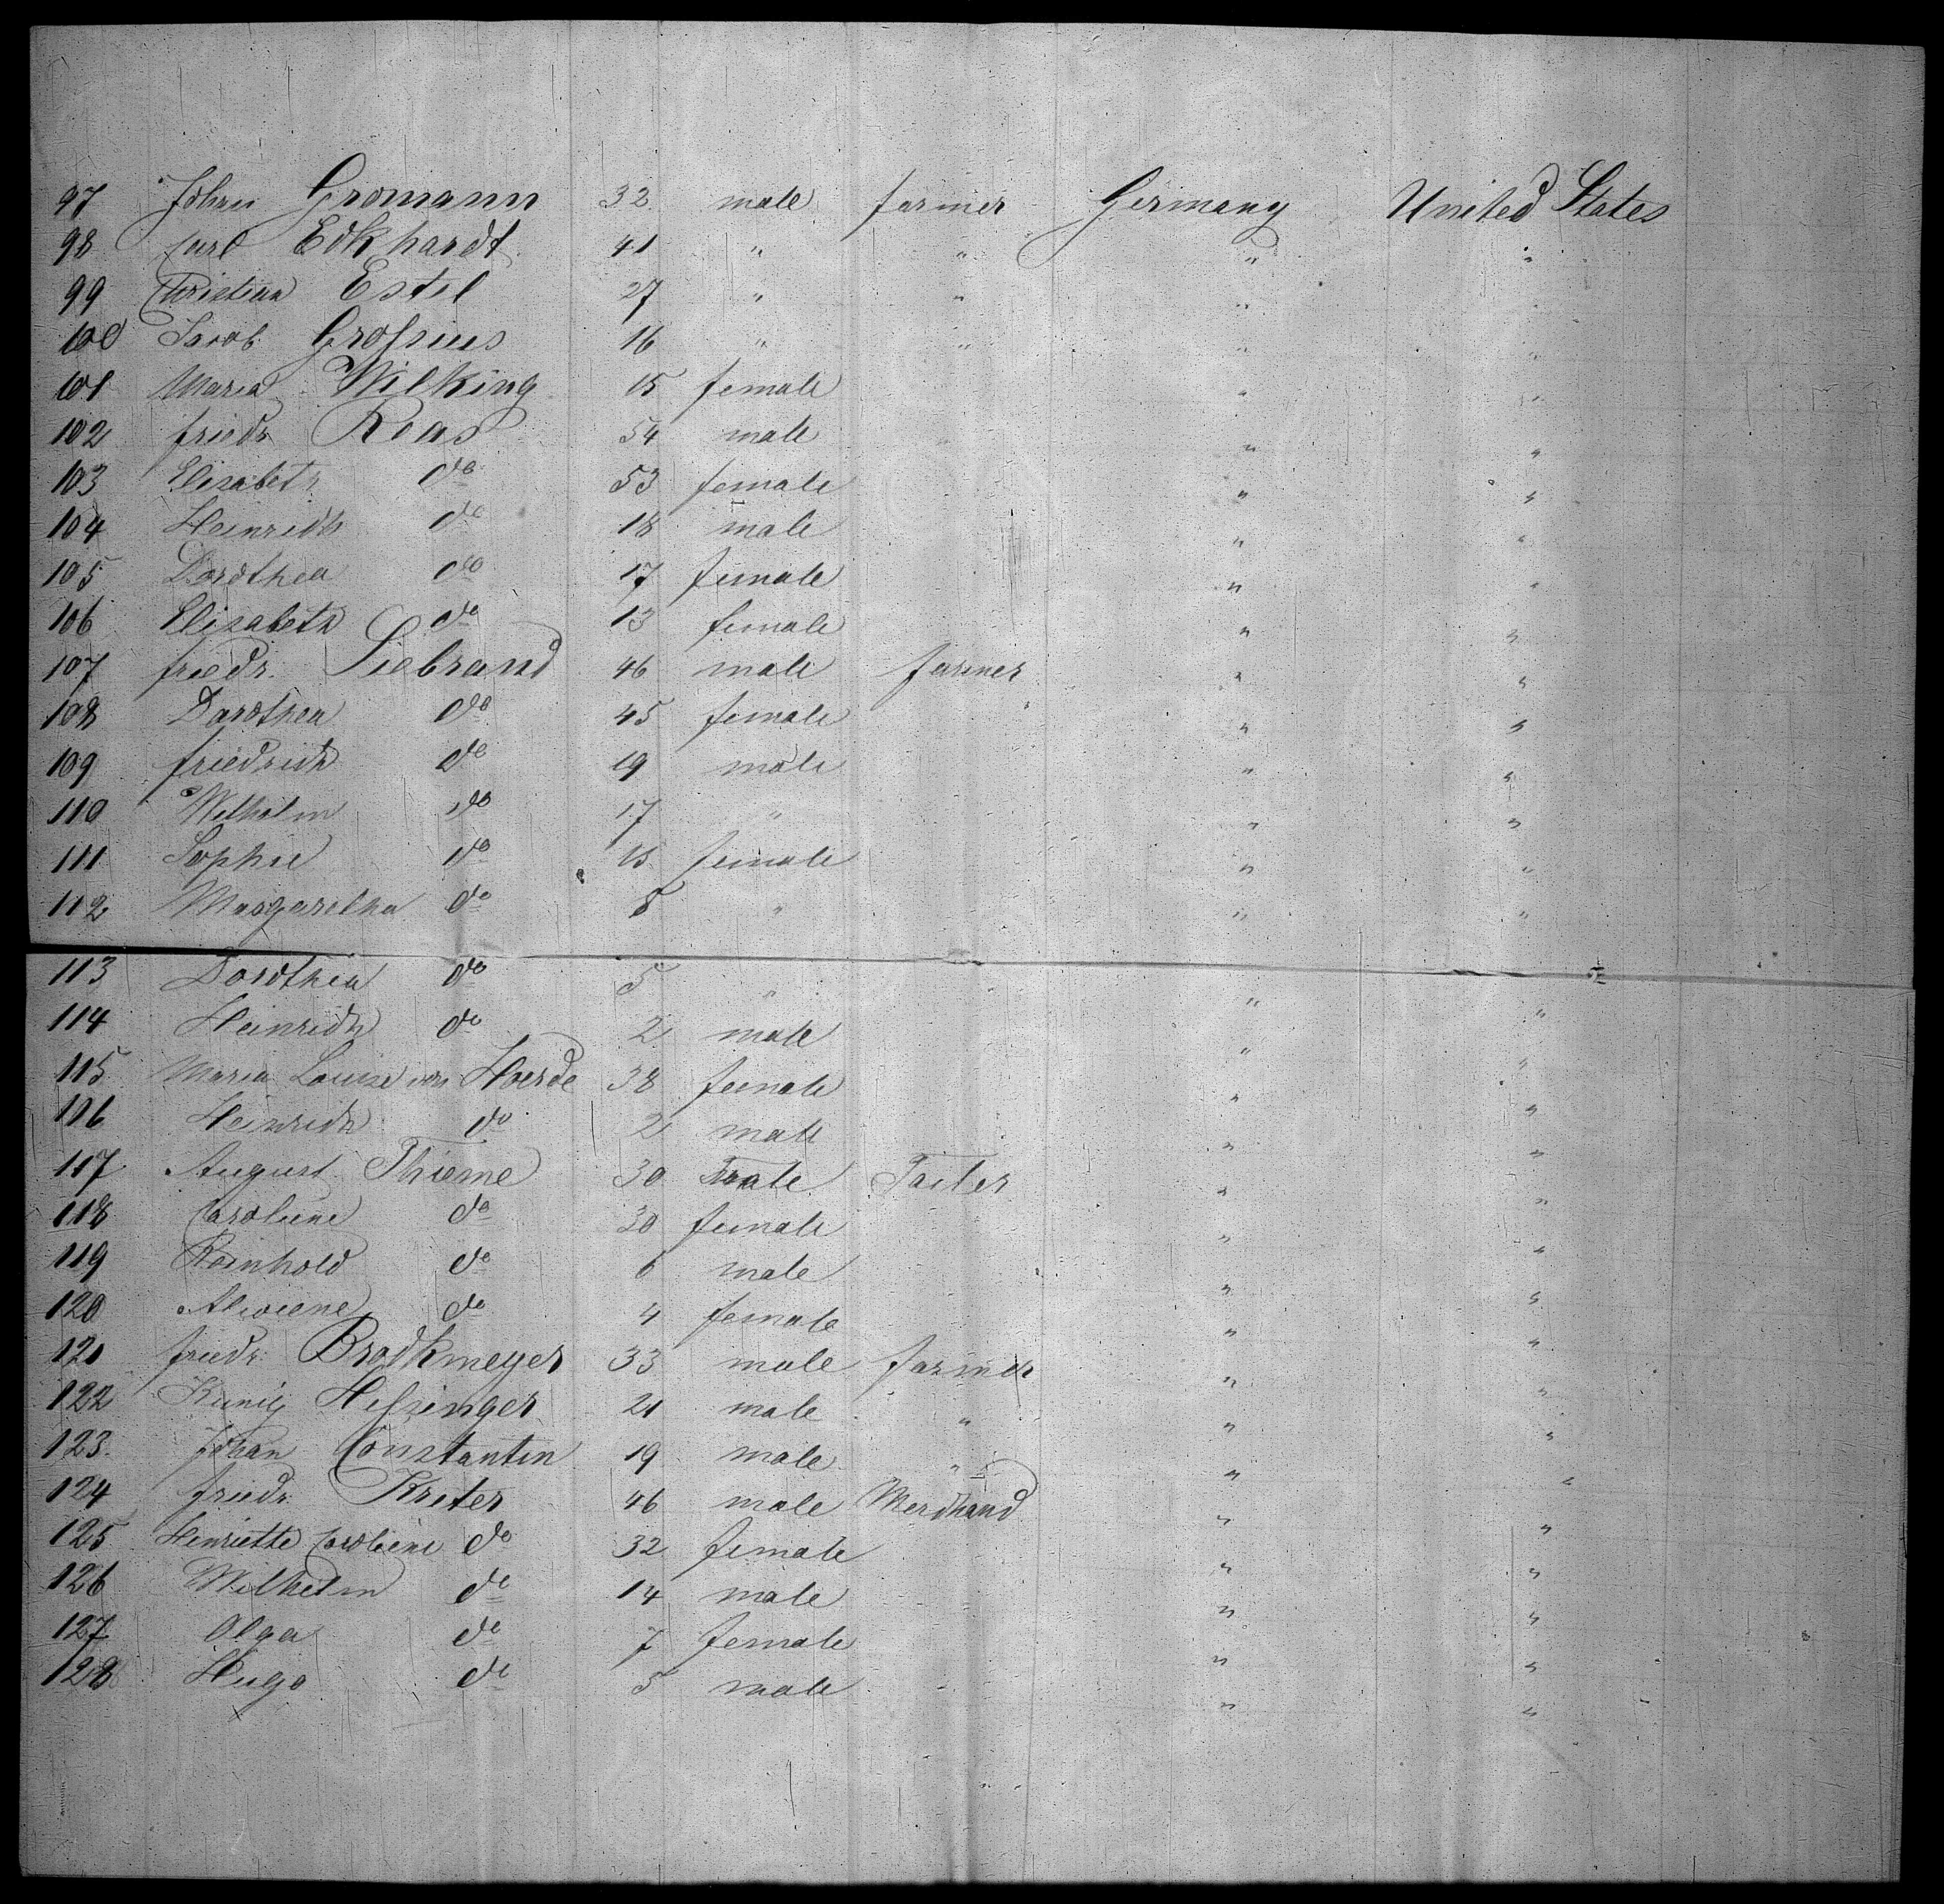 97 Johan Gromann 32 male farmer Germany United States
98 Carl Eckhardt 41 " " " "
99 Christian Estel 27 " " " "
100 Jacob Grossius 16 " " " "
101 Maria Wilking 15 female " "
102 friedr Roas 54 male " "
103 Elisabeth do 53 female " "
104 Heinrich do 18 male " "
105 Dorothea do 17 female " "
106 Elisabeth do 13 female " "
107 friedr. Siebrand 46 male farmer " "
108 Dorothea do 45 female " "
109 friedrich do 19 male " "
110 Wilhelm do 17 " " "
111 Sophie do 15 female " "
112 Margaretha do 8 " " "
113 Dorothea do 5 " " "
114 Heinrich do 2 male " "
115 Maria Louise von Hoerde 38 female " "
116 Heinrich do 2 male " "
117 August Thieme 30 male Tailer " "
118 Caroliene do 30 female " "
119 Reinhold do 6 male " "
120 Alwiene do 4 female " "
121 friedr. Brockmeyer 33 male farmer " "
122 Hessinger 21 male " " "
123. Johan Constantin 19 male " " "
124 friedr. Kreter 46 male Merchand " "
125 Henriette Caroliene do 32 female " "
126 Wilhelm do 14 male " "
127 Olga do 7 female " "
128 Hugo do 5 male " "